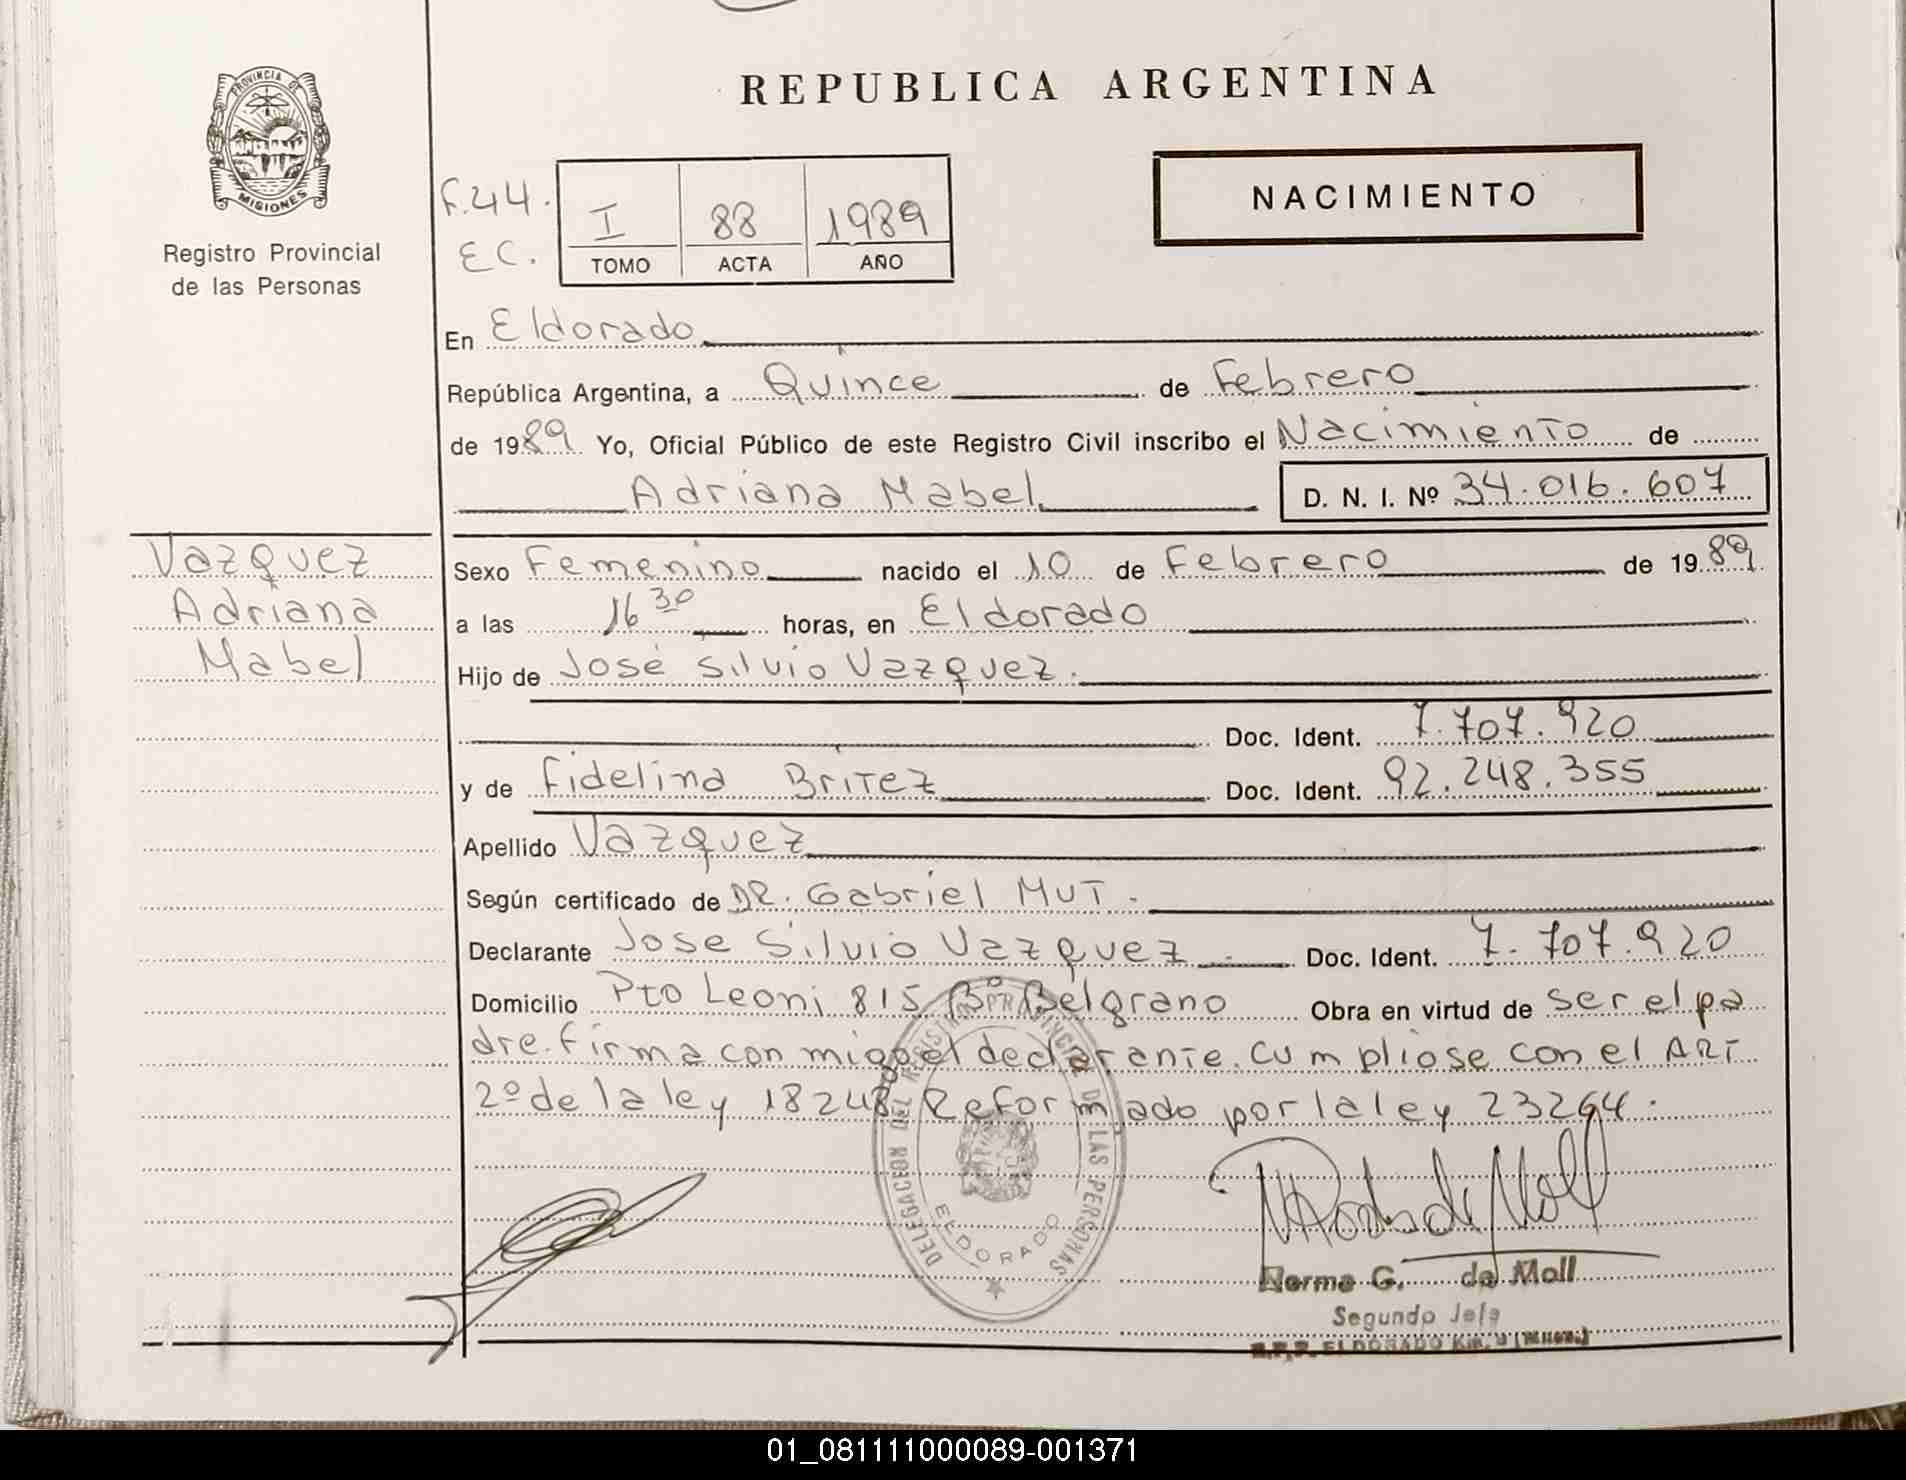 PROVINCIA DE
MISIONES
Registro Provincial
de las Personas
REPUBLICA ARGENTINA
NACIMIENTO
F.44.
E C.
I 88 1989
TOMO ACTA AÑO
En Eldorado
República Argentina, a Quince de Febrero
de 1989 Yo, Oficial Público de este Registro Civil inscribo el Nacimiento de
Adriana Mabel D. N. I. Nº 34.016.607
Vazquez
Adriana
Mabel
Sexo Femenino nacido el 10 de Febrero de 1989
a las 16 30 horas, en Eldorado
Hijo de José Silvio Vazquez.
Doc. Ident. 7.707.920
y de Fidelina Britez Doc. Ident. 92.248.355
Apellido Vazquez
Según certificado de DR. Gabriel MUT.
Declarante Jose Silvio Vazquez Doc. Ident. 7.707.920
Domicilio Pto Leoni 815 Bº Belgrano Obra en virtud de ser el pa
dre. Firma con migo el declarante. Cumpliose con el ART
2º de la ley 18248 Reformado por la ley 23264.
DELEGACION DEL REGISTRO PROVINCIAL DE LAS PERSONAS
ELDORADO
Norma G. de Moll
Segundo Jefe
R.P.P. ELDORADO Km. 9 (Mnes.)
01_081111000089-001371